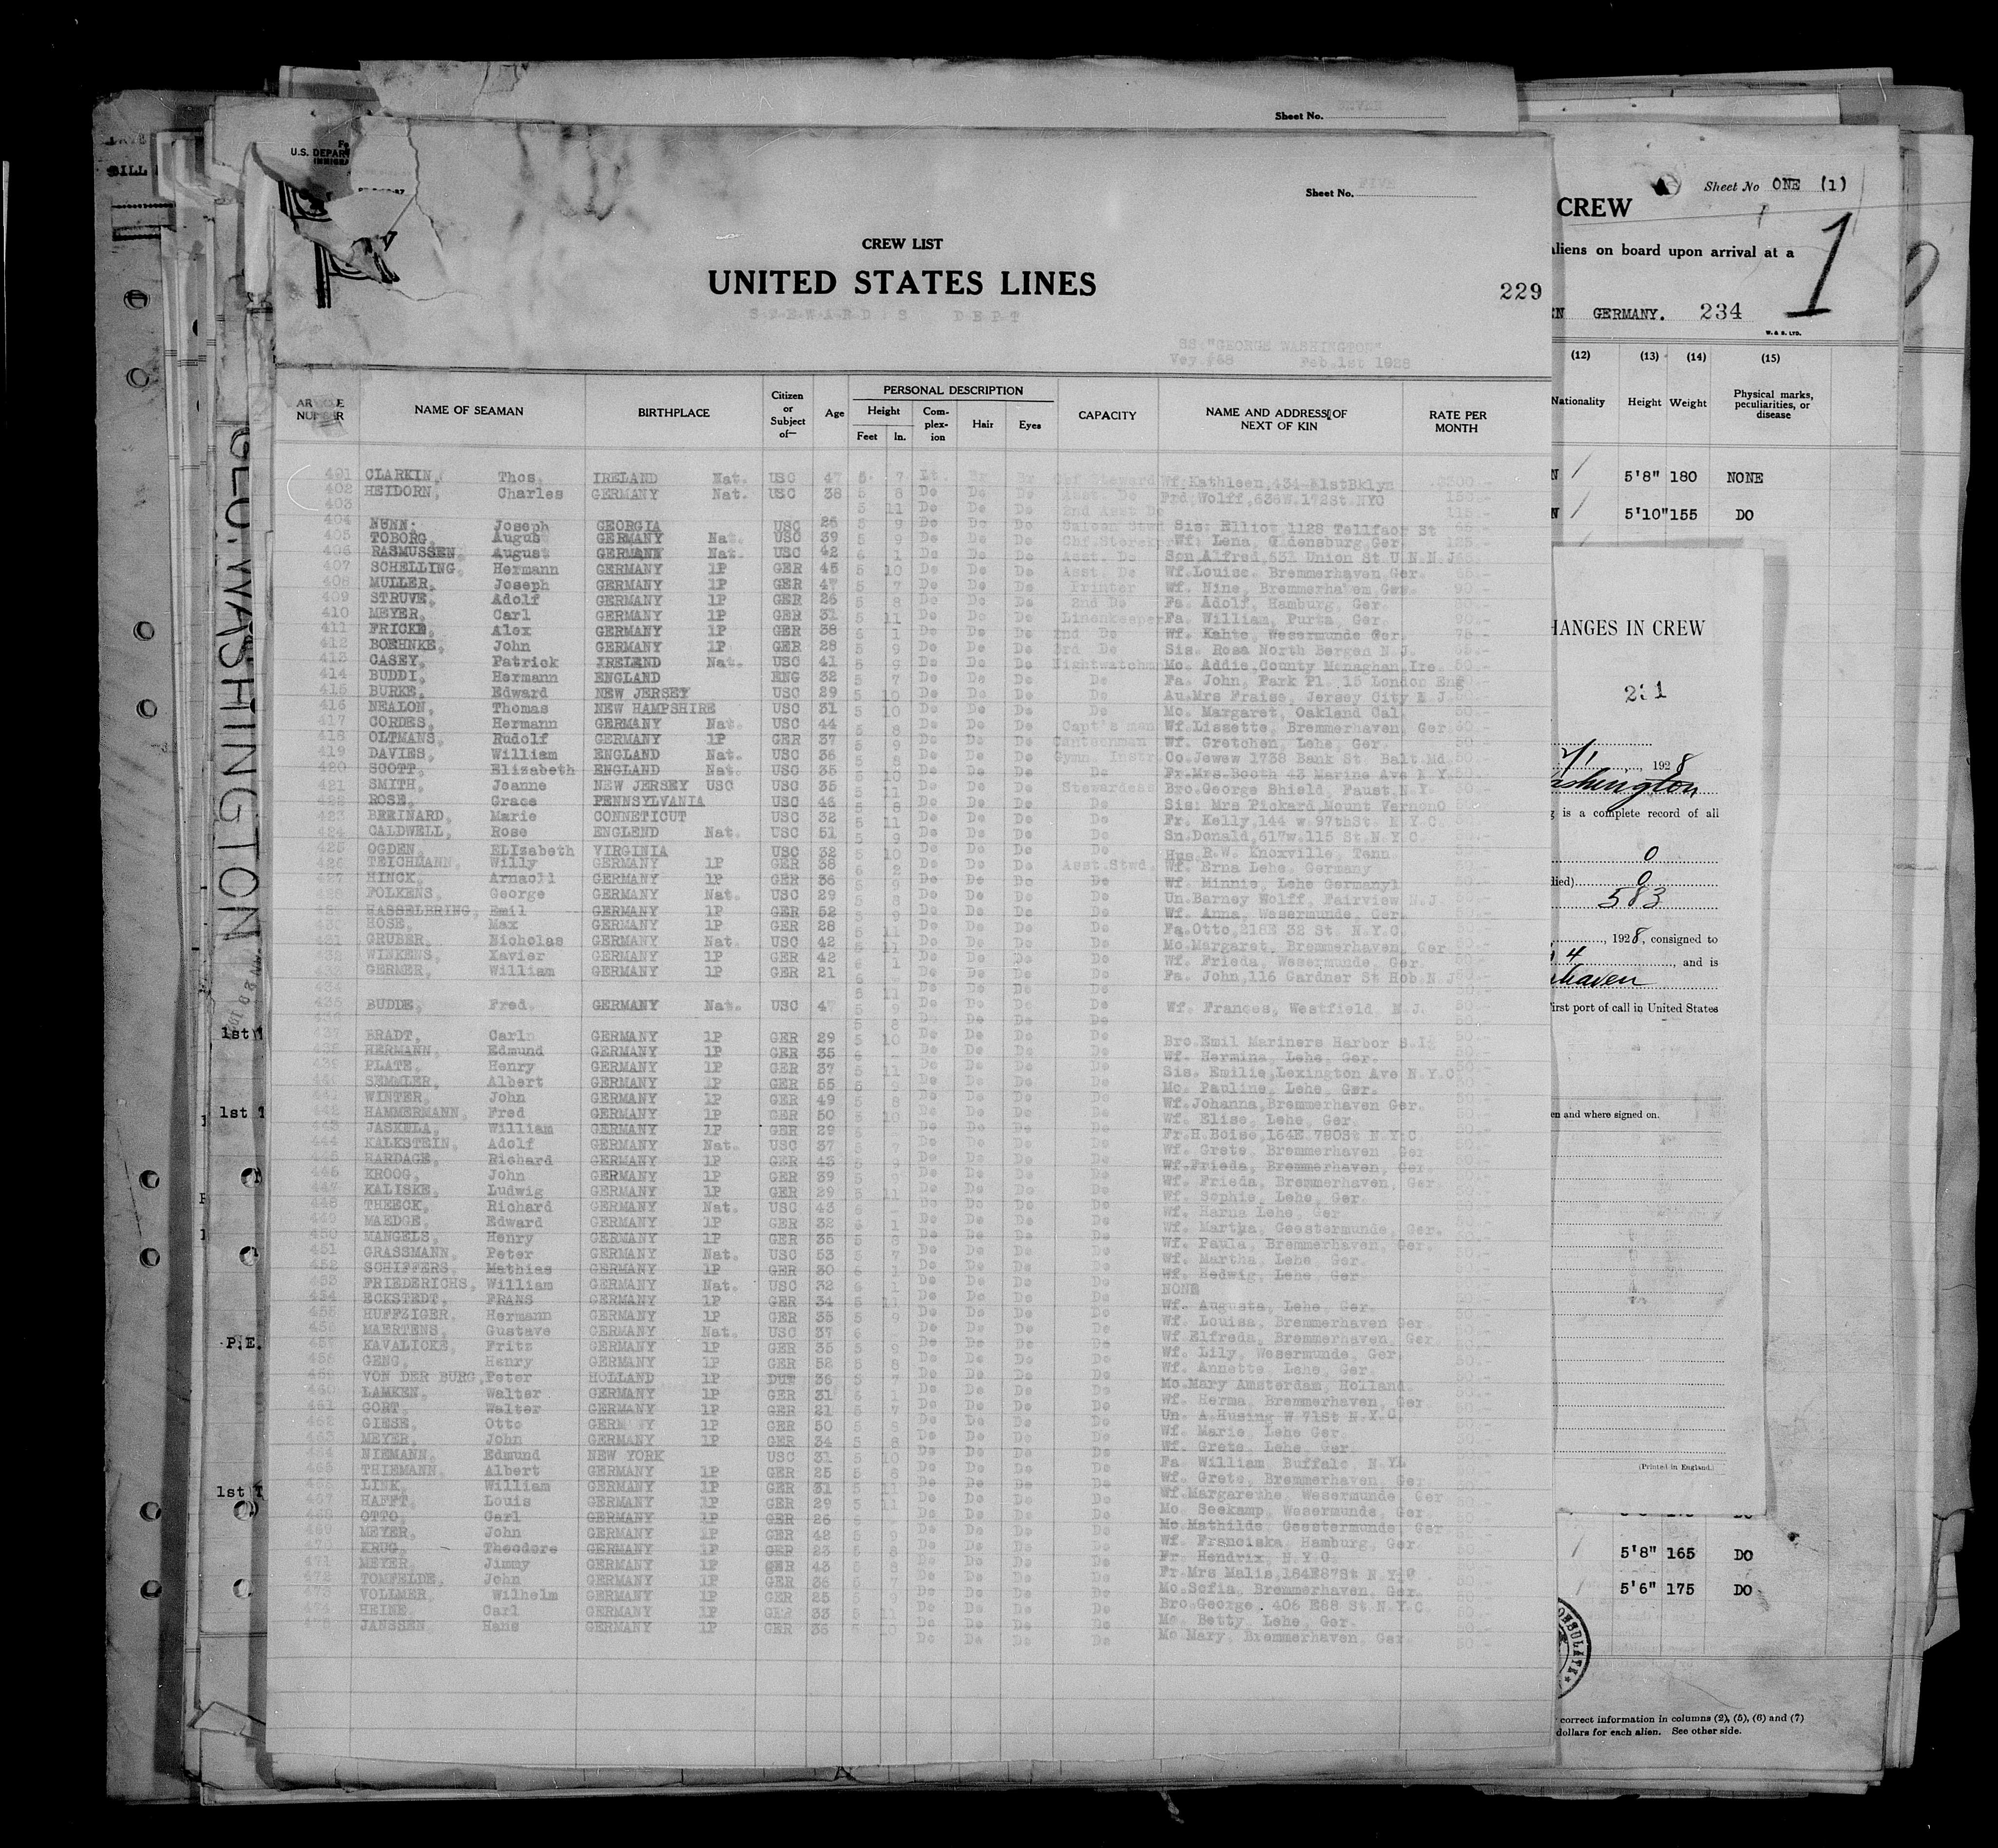 Sheet No.
U.S. DEPAR
Sheet No. FIVE
CREW LIST
UNITED STATES LINES
STEWARD'S DEPT
229
SS."GEORGE WASHINGTON"
Voy.#58 Feb.1st 1928
ARTICLE NUMBER NAME OF SEAMAN BIRTHPLACE Citizen or Subject of— Age PERSONAL DESCRIPTION Height Feet In. Complexion Hair Eyes CAPACITY NAME AND ADDRESS OF NEXT OF KIN RATE PER MONTH
401 CLARKIN, Thos. IRELAND Nat. USC 47 5 7 Wf.Kathleen,434
402 HEIDORN, Charles GERMANY Nat. USC 38 5 8 Do Do Do Asst. Do Frd.Wolff,636W.172St.NYC
403 5 11 Do Do Do 2nd Asst Do 115.-
404 NUNN, Joseph GEORGIA USC 26 5 9 Do Do Do Saloon Stwd Sis: Elliot,1128 St
405 TOBORG, August GERMANY Nat. USC 39 5 9 Do Do Do Wf: Lena, Ger. 125.-
406 RASMUSSEN, August GERMANY Nat. USC 42 6 1 Do Do Do Asst. Do Son Alfred,531 Union St U.N.N.J
407 SCHELLING, Hermann GERMANY 1P GER 45 5 10 Do Do Do Asst. Do Wf.Louise. Bremmerhaven Ger.
408 MULLER, Joseph GERMANY 1P GER 47 5 7 Do Do Do Printer Wf. Nine, Bremmerhavem Ger. 90.-
409 STRUVE, Adolf GERMANY 1P GER 26 5 8 Do Do Do 2nd Do Fa. Adolf, Hamburg, Ger.
410 MEYER, Carl GERMANY 1P GER 31 5 11 Do Do Do Linenkeeper Fa. William, Furta, Ger. 90.-
411 FRICKE, Alex GERMANY 1P GER 38 6 1 Do Do Do 2nd Do Wf. Kahte, Wesermunde Ger. 75.-
412 BOEHNKE, John GERMANY 1P GER 28 5 9 Do Do Do 3rd Do Sis. Rosa North Bergen N.J.
413 CASEY, Patrick IRELAND Nat. USC 41 5 9 Do Do Do Nightwatchm Mo. Addie,County Monaghan,Ire 50.-
414 BUDDI, Hermann ENGLAND ENG 32 5 7 Do Do Do Do Fa. John, Park Pl. 15 London Eng
415 BURKE, Edward NEW JERSEY USC 29 5 10 Do Do Do Do Au.Mrs Fraise, Jersey City N J
416 NEALON, Thomas NEW HAMPSHIRE USC 31 5 10 Do Do Do Do Mo. Margaret, Oakland Cal.
417 CORDES, Hermann GERMANY Nat. USC 44 5 8 Do Do Do Capt's man Wf.Lissette, Bremmerhaven, Ger
418 OLTMANS, Rudolf GERMANY 1P GER 37 5 9 Do Do Do Wf. Gretchen, Lehe, Ger.
419 DAVIES, William ENGLAND Nat. USC 36 5 8 Do Do Do Gymn.Instr. Co.Jewew 1738 Bank St Balt Md
420 SCOTT, Elizabeth ENGLAND Nat. USC 35 5 10 Do Do Do Do Fr.Mrs Booth 43 Marine Ave N.Y
421 SMITH, Jeanne NEW JERSEY USC USC 35 5 11 Do Do Do Stewardess Bro.George Shield, Faust,N.Y.
422 ROSE, Grace PENNSYLVANIA USC 46 5 8 Do Do Do Do Sis: Mrs Pickard,Mount VernonO
423 BERINARD, Marie CONNETICUT USC 32 5 11 Do Do Do Do Fr. Kelly,144 w 97thSt. N.Y.C.
424 CALDWELL, Rose ENGLEND Nat. USC 51 5 9 Do Do Do Do Sn.Donald,617w.115 St.N.Y.C.
425 OGDEN, ELIzabeth VIRGINIA USC 32 5 10 Do Do Do Do Hus.R.W. Knoxville, Tenn.
426 TEICHMANN, Willy GERMANY 1P GER 38 6 2 Do Do Do Asst.Stwd. Wf. Erna Lehe, Germany
427 HINCK, GERMANY 1P GER 36 5 9 Do Do Do Do Wf. Minnie, Lehe Germany 50.-
428 FOLKENS, George GERMANY Nat. USC 29 5 8 Do Do Do Do Un.Barney Wolff, Fairview N.J.
429 HASSELBRING, Emil GERMANY 1P GER 52 5 9 Do Do Do Do Wf. Anna, Wesermunde, Ger.
430 ROSE, Max GERMANY 1P GER 28 5 11 Do Do Do Do Fa.Otto,218E 32 St. N.Y.C.
431 GRUBER, Nicholas GERMANY Nat. USC 42 5 11 Do Do Do Do Mo.Margaret, Bremmerhaven, Ger
432 WINKENS, Xavier GERMANY 1P GER 42 6 1 Do Do Do Do Wf. Frieda, Wesermunde, Ger.
433 GERMER, William GERMANY 1P GER 21 Do Do Do Do Fa. John,116 Gardner St Hob.N.J
434 5 11 Do Do Do Do
435 BUDDE, Fred. GERMANY Nat. USC 47 5 9 Do Do Do Do Wf. Frances, Westfield N.J. 50.-
436 5 8 Do Do Do Do
437 BRADT, Carl GERMANY 1P GER 29 5 10 Do Do Do Do Bro.Emil Mariners Harbor S.I. 50.-
438 HERMANN, Edmund GERMANY 1P GER 35 6 - Do Do Do Do Wf. Hermina, Lehe, Ger.
439 PLATE, Henry GERMANY 1P GER 37 5 11 Do Do Do Do Sis. Emilie,Lexington Ave N.Y.C
440 SEMMLER, Albert GERMANY 1P GER 55 5 9 Do Do Do Do Mo. Pauline, Lehe, Ger.
441 WINTER, John GERMANY 1P GER 49 5 8 Do Do Do Do Wf.Johanna,Bremmerhaven Ger.
442 HAMMERMANN, Fred GERMANY 1P GER 50 5 10 Do Do Do Do Wf. Elise, Lehe, Ger.
443 JASKULA, William GERMANY 1P GER 29 Do Do Do Do Fr.H.Boise,164E 780St N.Y.C
444 KALKSTEIN, Adolf GERMANY Nat. USC 37 5 7 Do Do Do Do Wf. Grete, Bremmerhaven, Ger
445 HARDAGE, Richard GERMANY 1P GER 43 5 9 Do Do Do Do Wf.Frieda, Bremmerhaven, Ger.
446 KROOG, John GERMANY 1P GER 39 5 9 Do Do Do Do Wf. Frieda, Bremmerhaven, Ger.
447 KALISKE, Ludwig GERMANY 1P GER 29 5 11 Do Do Do Do Wf. Sophie, Lehe, Ger.
448 THEECK, Richard GERMANY Nat. USC 43 6 - Do Do Do Do Wf. Harna Lehe, Ger.
449 MAEDGE, Edward GERMANY 1P GER 32 6 1 Do Do Do Do Wf. Martha, Geestermunde, Ger.
450 MANGELS, Henry GERMANY 1P GER 35 5 8 Do Do Do Do Wf. Paula, Bremmerhaven, Ger.
451 GRASSMANN, Peter GERMANY Nat. USC 53 5 7 Do Do Do Do Wf. Martha, Lehe, Ger.
452 SCHIFFERS, Mathias GERMANY 1P GER 30 6 1 Do Do Do Do Wf. Hedwig, Lehe, Ger
453 FRIEDERICHS, William GERMANY Nat. USC 32 6 1 Do Do Do Do NONE
454 ECKSTEDT, FRANS GERMANY 1P GER 34 5 11 Do Do Do Do Wf. Augusta, Lehe, Ger.
455 HUFFZIGER, Hermann GERMANY 1P GER 35 5 9 Do Do Do Do Wf. Louisa, Bremmerhaven Ger
456 MAERTENS, Gustave GERMANY Nat. USC 37 6 - Do Do Do Do Wf.Elfreda, Bremmerhaven, Ger
457 KAVALICKE, Fritz GERMANY 1P GER 35 5 9 Do Do Do Do Wf. Lily, Wesermunde, Ger.
458 GENG, Henry GERMANY 1P GER 52 5 8 Do Do Do Do Wf. Annette, Lehe, Ger.
459 VON DER BURG,Peter HOLLAND 1P DUT 36 5 7 Do Do Do Do Mo.Mary Amsterdam, Holland.
460 LAMKEN, Walter GERMANY 1P GER 31 6 1 Do Do Do Do Wf. Herma, Bremmerhaven, Ger
461 GORT, Walter GERMANY 1P GER 21 5 7 Do Do Do Do Un. A.Husing W 71St N.Y.C.
462 GIESE, Otto GERMANY 1P GER 50 5 8 Do Do Do Do Wf. Marie, Lehe Ger.
463 MEYER, John GERMANY 1P GER 34 5 8 Do Do Do Do Wf. Grete, Lehe, Ger.
464 NIEMANN, Edmund NEW YORK USC 31 5 10 Do Do Do Do Fa. William, Buffalo, N.Y.
465 THIEMANN, Albert GERMANY 1P GER 25 5 8 Do Do Do Do Wf. Grete, Bremmerhaven, Ger
466 LINK, William GERMANY 1P GER 31 5 11 Do Do Do Do Wf.Margarethe, Wesermunde, Ger
467 HAFFT, Louis GERMANY 1P GER 29 5 11 Do Do Do Do Mo. Seekamp, Wesermunde, Ger
468 OTTO, Carl GERMANY 1P GER 26 Do Do Do Do Mo.Mathilde, Geestermunde, Ger
469 MEYER, John GERMANY 1P GER 42 5 9 Do Do Do Do Wf. Franciska, Hamburg, Ger
470 KRUG, Theodore GERMANY 1P GER 23 5 8 Do Do Do Do Fr. Hendrix, N.Y.C.
471 MEYER, Jimmy GERMANY 1P GER 43 5 8 Do Do Do Do Fr.Mrs Malis,184E87St N.Y.
472 TOMFELDE, John GERMANY 1P GER 36 5 7 Do Do Do Do Mo.Sofia, Bremmerhaven, Ger.
473 VOLLMER, Wilhelm GERMANY 1P GER 25 5 9 Do Do Do Do Bro.George. 406 E88 St.N.Y.C
474 HEINE, Carl GERMANY 1P GER 33 5 11 Do Do Do Do Mo. Betty, Lehe, Ger.
475 JANSSEN Hans GERMANY 1P GER 36 5 10 Do Do Do Do Mo Mary, Bremmerhaven, Ger 50
BILL
WASHINGTON
1st
1st
P.E.
1st
Sheet No ONE (1)
CREW
aliens on board upon arrival at a
1
GERMANY. 234
W. & S. LTD.
(12) (13) (14) (15)
Nationality Height Weight Physical marks, peculiarities, or disease
5'8" 180 NONE
5'10" 155 DO
HANGES IN CREW
231
2/1, 1928
ashington
is a complete record of all
0
died) 0
583
, 1928, consigned to
4 , and is
haven
irst port of call in United States
en and where signed on.
(Printed in England.)
5'8" 165 DO
5'6" 175 DO
correct information in columns (2), (5), (6) and (7)
dollars for each alien. See other side.